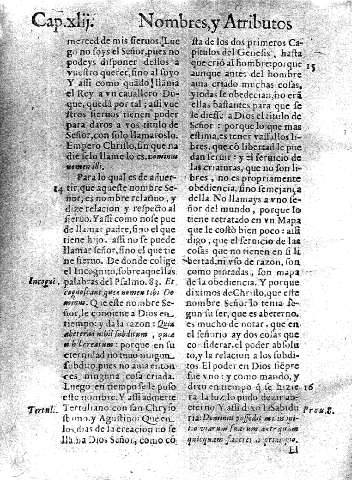 Cap.xlij. Nombres, y Atributos
merced de mis sieruos. Lue
go no soys el Señor, pues no
podeys disponer dellos a
vuestro querer, sino al suyo
Y assi como quãdo llama
el Rey a vn cauallero Du-
que, queda por tal; assi vue
stros sieruos tienen poder
para daros a vos titulo de
Señor, con solo llamaroslo.
Empero Christo, sin que na
die se lo llame lo es. Dominus
nomen illi.
Para lo qual es de aduer-
14 tir, que aqueste nombre Se
ñor, es nombre relatiuo, y
dize relacion y respecto al
sieruo. Y assi como no se pue
de llamar padre, sino el que
tiene hijo. assi no se puede
llamar señor, sino el que tie
ne sieruo. De donde colige
Incogni. el Incognito, sobre aquellas
palabras del Psalmo. 83. Et
cognoscant quia nomen tibi Do
minus. Que este nombre Se
ñor, le conuiene a Dios en
tiempo; y da la razon: Quia
ab eterno nihil subditum, quia
nihil creatum: porque en su
eternidad no tuuo ningun
subdito, pues no auia enton
ces ninguna cosa criada.
Luego en tiempo se le puso
este nombre. Y assi aduierte
Tertul. Tertuliano con san Chryso
stomo, y Agustino: Que en
los dias de la creacion no se
llama Dios Señor, como cõ
sta de los dos primeros Ca-
pitulos del Genesis, hasta
que criò al hombre: porque 15
aunque antes del hombre
auia criado muchas cosas,
y todas le obedecian, no erã
ellas bastantes para que se
le diesse a Dios el titulo de
Señor: porque lo que mas
estima, es tener vassallos li-
bres, que cõ libertad le pue
dan seruir: y el seruicio de
las criaturas, que no son li
bres, no es propriamente
obediencia, sino semejança
della. No llamays a vno se
ñor del mundo, porque lo
tiene retratado en vn Mapa
que le costò bien poco: assi
digo, que el seruicio de las
cosas que no tienen en si li
bertad, ni vso de razon, son
como pintadas, son mapa
de la obediencia. Y porque
diximos de Christo, que este
nombre Señor lo tenia se-
gun su ser, que es ab eterno,
es mucho de notar, que en
el señorio ay dos cosas que
considerar. el poder absolu
to, y la relacion a los subdi-
tos. El poder en Dios siẽpre
fue vno: y como mando, y
dixo en tiempo q̃ se hizie 16
ra la luz, lo pudo dezir ab
eterno. Y assi dixo la Sabidu
ria: Dominus possedit me in ini Prou.8.
tio viarum suarum antequam
quicquam faceret a principio.
El